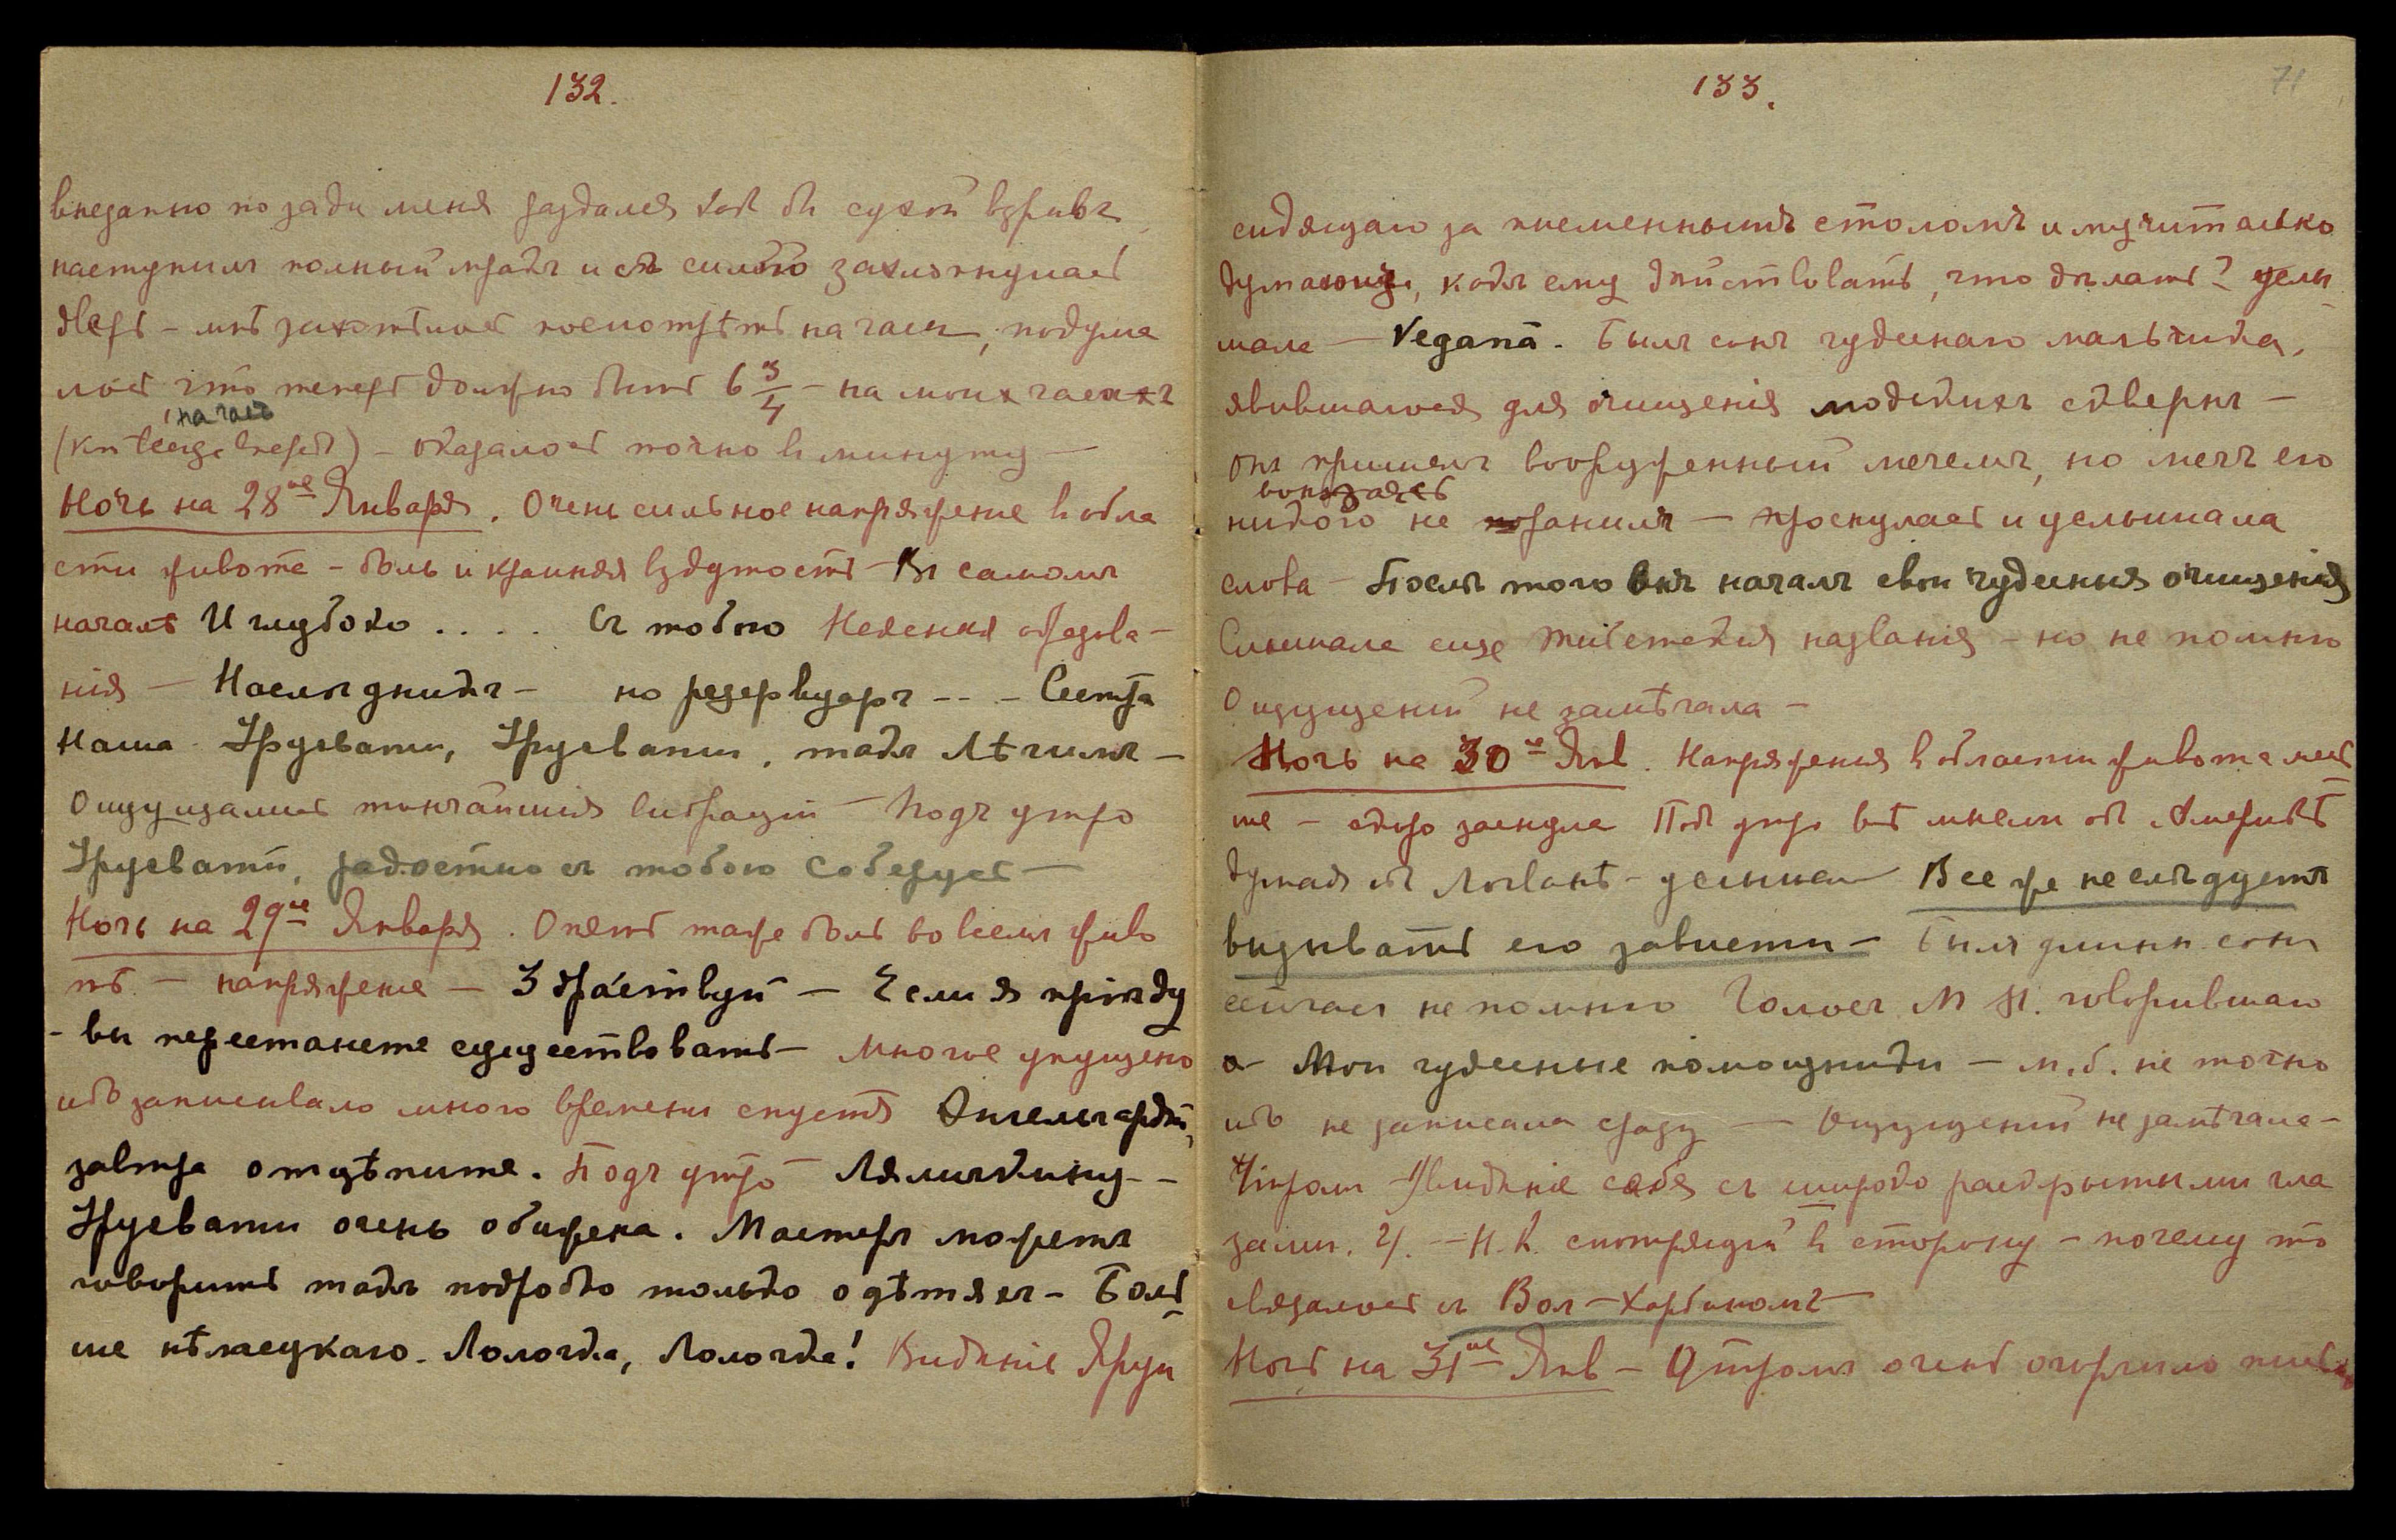 132.
внезапно позади меня раздался как бы сухой взрывъ,
наступилъ полный мракъ и съ силою захлопнулась
дверь – мнѣ захотѣлось посмотрѣть на часы, подума
лось что теперь должно быть 6 3/4 – на моихъ часахъ
на часъ
(впередъ) – оказалось точно въ минуту —
Ночь на 28ое Января. Очень сильное напряженіе въ обла
сти живота – боль и крайняя вздутость – Въ самомъ
началѣ И глубоко . . . . Съ тобою Неясныя образова-
нія — Наслѣдникъ – но резервуаръ - - - Сестра
Наша – Урусвати, Урусвати, такъ лѣчимъ –
Ощущались тончайшія вибраціи – Подъ утро
Урусвати, радостно съ тобою Собесѣд
Ночь на 29ое Января. Опять таже боль во всемъ живо
тѣ – напряженіе – Здравствуй – Если я приду
- вы перестанете существовать – Многое упущено
ибо записывала много времени спустя Энгельгардтъ,
завтра отцѣпите. Подъ утро – Лямичкину - -
Урусвати очень обижена. Мастеръ можетъ
говорить такъ подробно только о дѣтяхъ – Боль
ше нѣмецкаго. Лологка, Лологка! Видѣніе Яруи
133.
71
сидящаго за письменнымъ столомъ и мучительно
думающи, какъ ему дѣйствовать, что дѣлать? Услы
шала — Vegana. Былъ сонъ чудеснаго мальчика,
явившагося для очищенія людскихъ сквернъ –
онъ пришелъ вооруженный мечемъ, но мечъ его
никого не поранилъ — проснулась и услышала
слова – Послѣ того онъ началъ свои чудесныя очищенія
Слышала еще тибетскія названія – но не помню
Ощущеній не замѣчала –
Ночь на 30ое Янв. Напряженія въ области живота мень
ше – скоро заснула Подъ утро всѣ мысли объ Америкѣ
думая объ Логванѣ – услышала Все же не слѣдуетъ
вызывать его зависти – Были длинн. сны
сейчасъ не помню Голосъ М М. говорившаго
о – Мои чудесные помощники – м.б. не точно
ибо не записала сразу — Ощущеній не замѣчала –
Утромъ 1) Видѣніе себя съ широко раскрытыми гла
зами. 2). – Н.К. смотрящій въ сторону – почему то
связалось съ Вол-Харбиномъ —
Ночь на 31ое Янв – Утромъ очень огорчило письмо